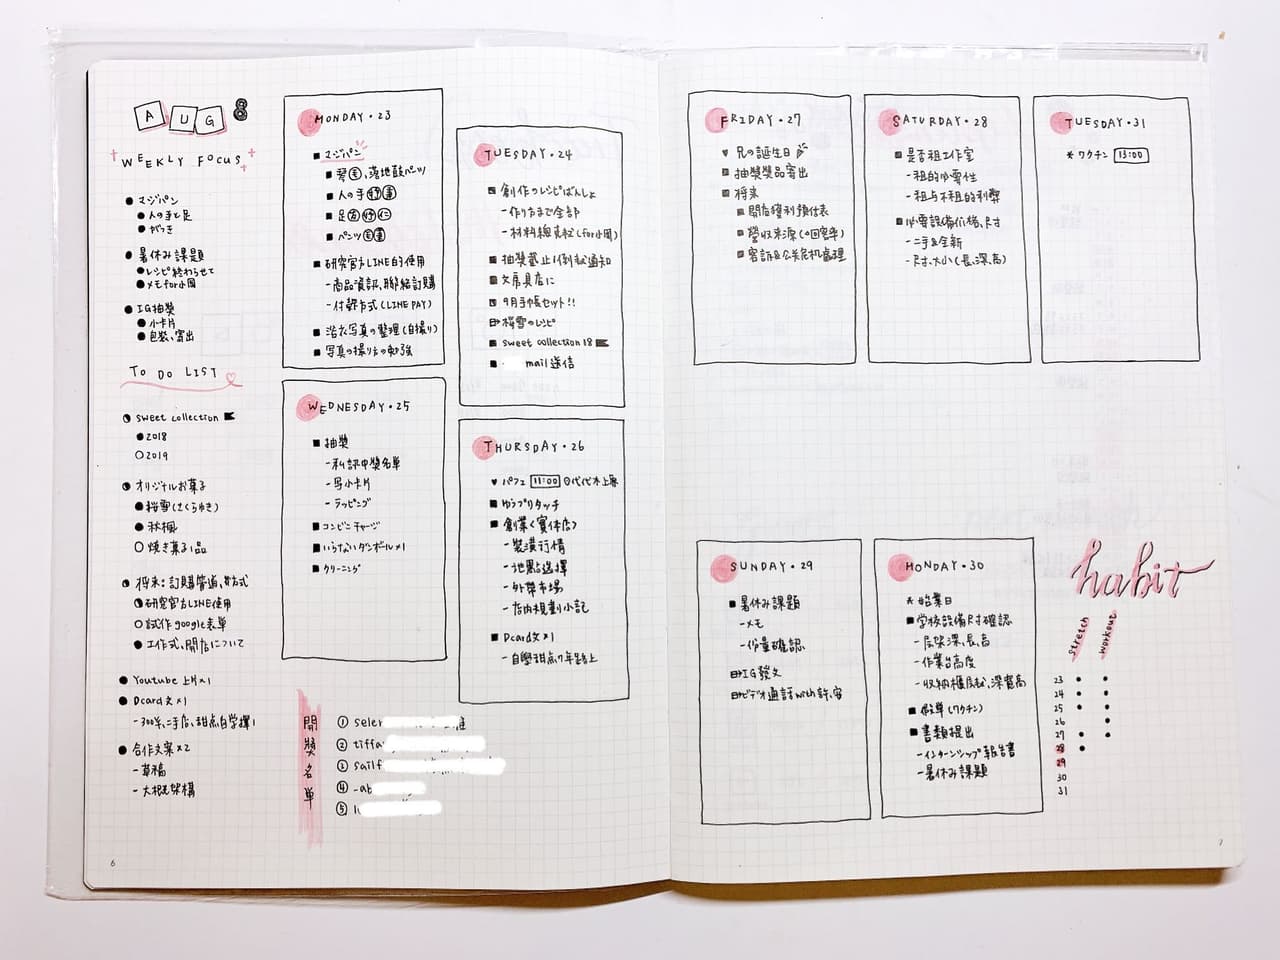 AUG 8
WEEKLY FOCUS
マジパン
人の手と足
がっき
暑休み課題
レシピ終わらせて
メモfor小園
IG抽獎
小卡片
包裝、寄出
TO DO LIST
sweet collection
2018
2019
オリジナルお菓子
桜雪(さくらゆき)
秋楓
焼き菓子1品
将来:訂購管道、方式
研究官方LINE使用
試作google表單
工作式、開店について
Youtube 上片×1
Dcard文×1
合作文案×2
-草稿
-大概架構
MONDAY・23
マジパン
人の手
足
パンツ
研究官方LINE的使用
-商品資訊、聯絡訂購
-付款方式(LINE PAY)
浴衣写真の整理(自撮り)
写真の撮り方の勉強
TUESDAY・24
創作のレシピばんしょ
-作り方まで全部
抽獎截止/倒數通知
文房具店に
9月手帳セット!!
桜雪のレシピ
sweet collection 18
mail送信
WEDNESDAY・25
抽獎
-私訊中獎名單
-写小卡片
-ラッピング
コンビニチャージ
いらないダンボール×1
クリーニング
THURSDAY・26
パフェ 11:00 @代代木上原
ゆうプリタッチ
創業<實体店>
-裝潢行情
-地點選擇
-外帶市場
-店内規劃小記
Dcard文×1
開獎名單
① seler
② tiffa
③ sailf
④ -ab
⑤ l
6
FRIDAY・27
兄の誕生日
抽獎獎品寄出
将来
開店獲利預估表
營收来源(回客率)
客訴&公关危机處理
SATURDAY・28
是否租工作室
-租的必要性
-租与不租的利弊
必要設備价格、尺寸
-二手&全新
-尺寸、大小(長、深、高)
TUESDAY・31
* ワクチン 13:00
SUNDAY・29
暑休み課題
-メモ
-份量確認
IG發文
ビデオ通話with許、容
MONDAY・30
* 始業日
学校設備尺寸確認
-层架深、長、高
-作業台高度
假單(ワクチン)
書類提出
-インターンシップ報告書
-暑休み課題
habit
stretch workout
23
24
25
26
27
28
29
30
31
7